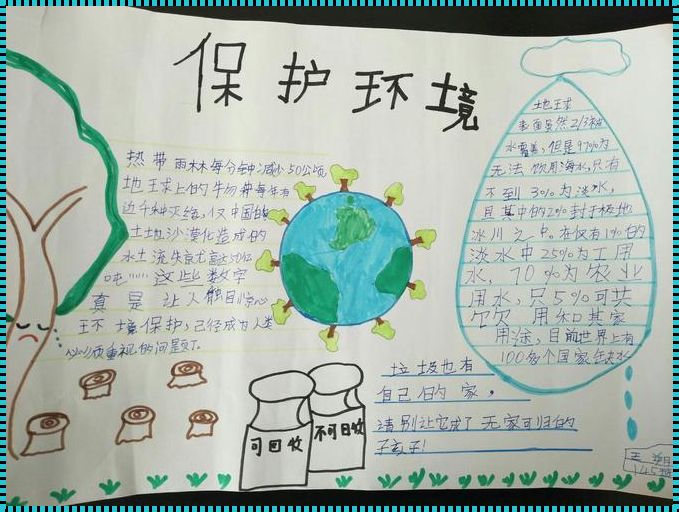 保护环境
热带雨林每分钟减少50公顷,
地球上的生物每年有
近千种灭绝,仅中国的
土地沙漠化造成的
水土流失就高达50亿
吨……这些数字
真是让人触目惊心
环境保护,已经成为人类
必须重视的问题了。
地球
表面虽然2/3被
水覆盖,但是97%为
无法饮用海水,只有
不到3%为淡水,
且其中的2%封于极地
冰川之中。在仅有1%的
淡水中25%为工用
水,70%为农业
用水,只5%可共
饮 用和其家
用途,目前世界上有
100多个国家缺水
垃圾也有
自己的家,
请别让它成了无家可归的
孩子!
可回收
不可回收
145班